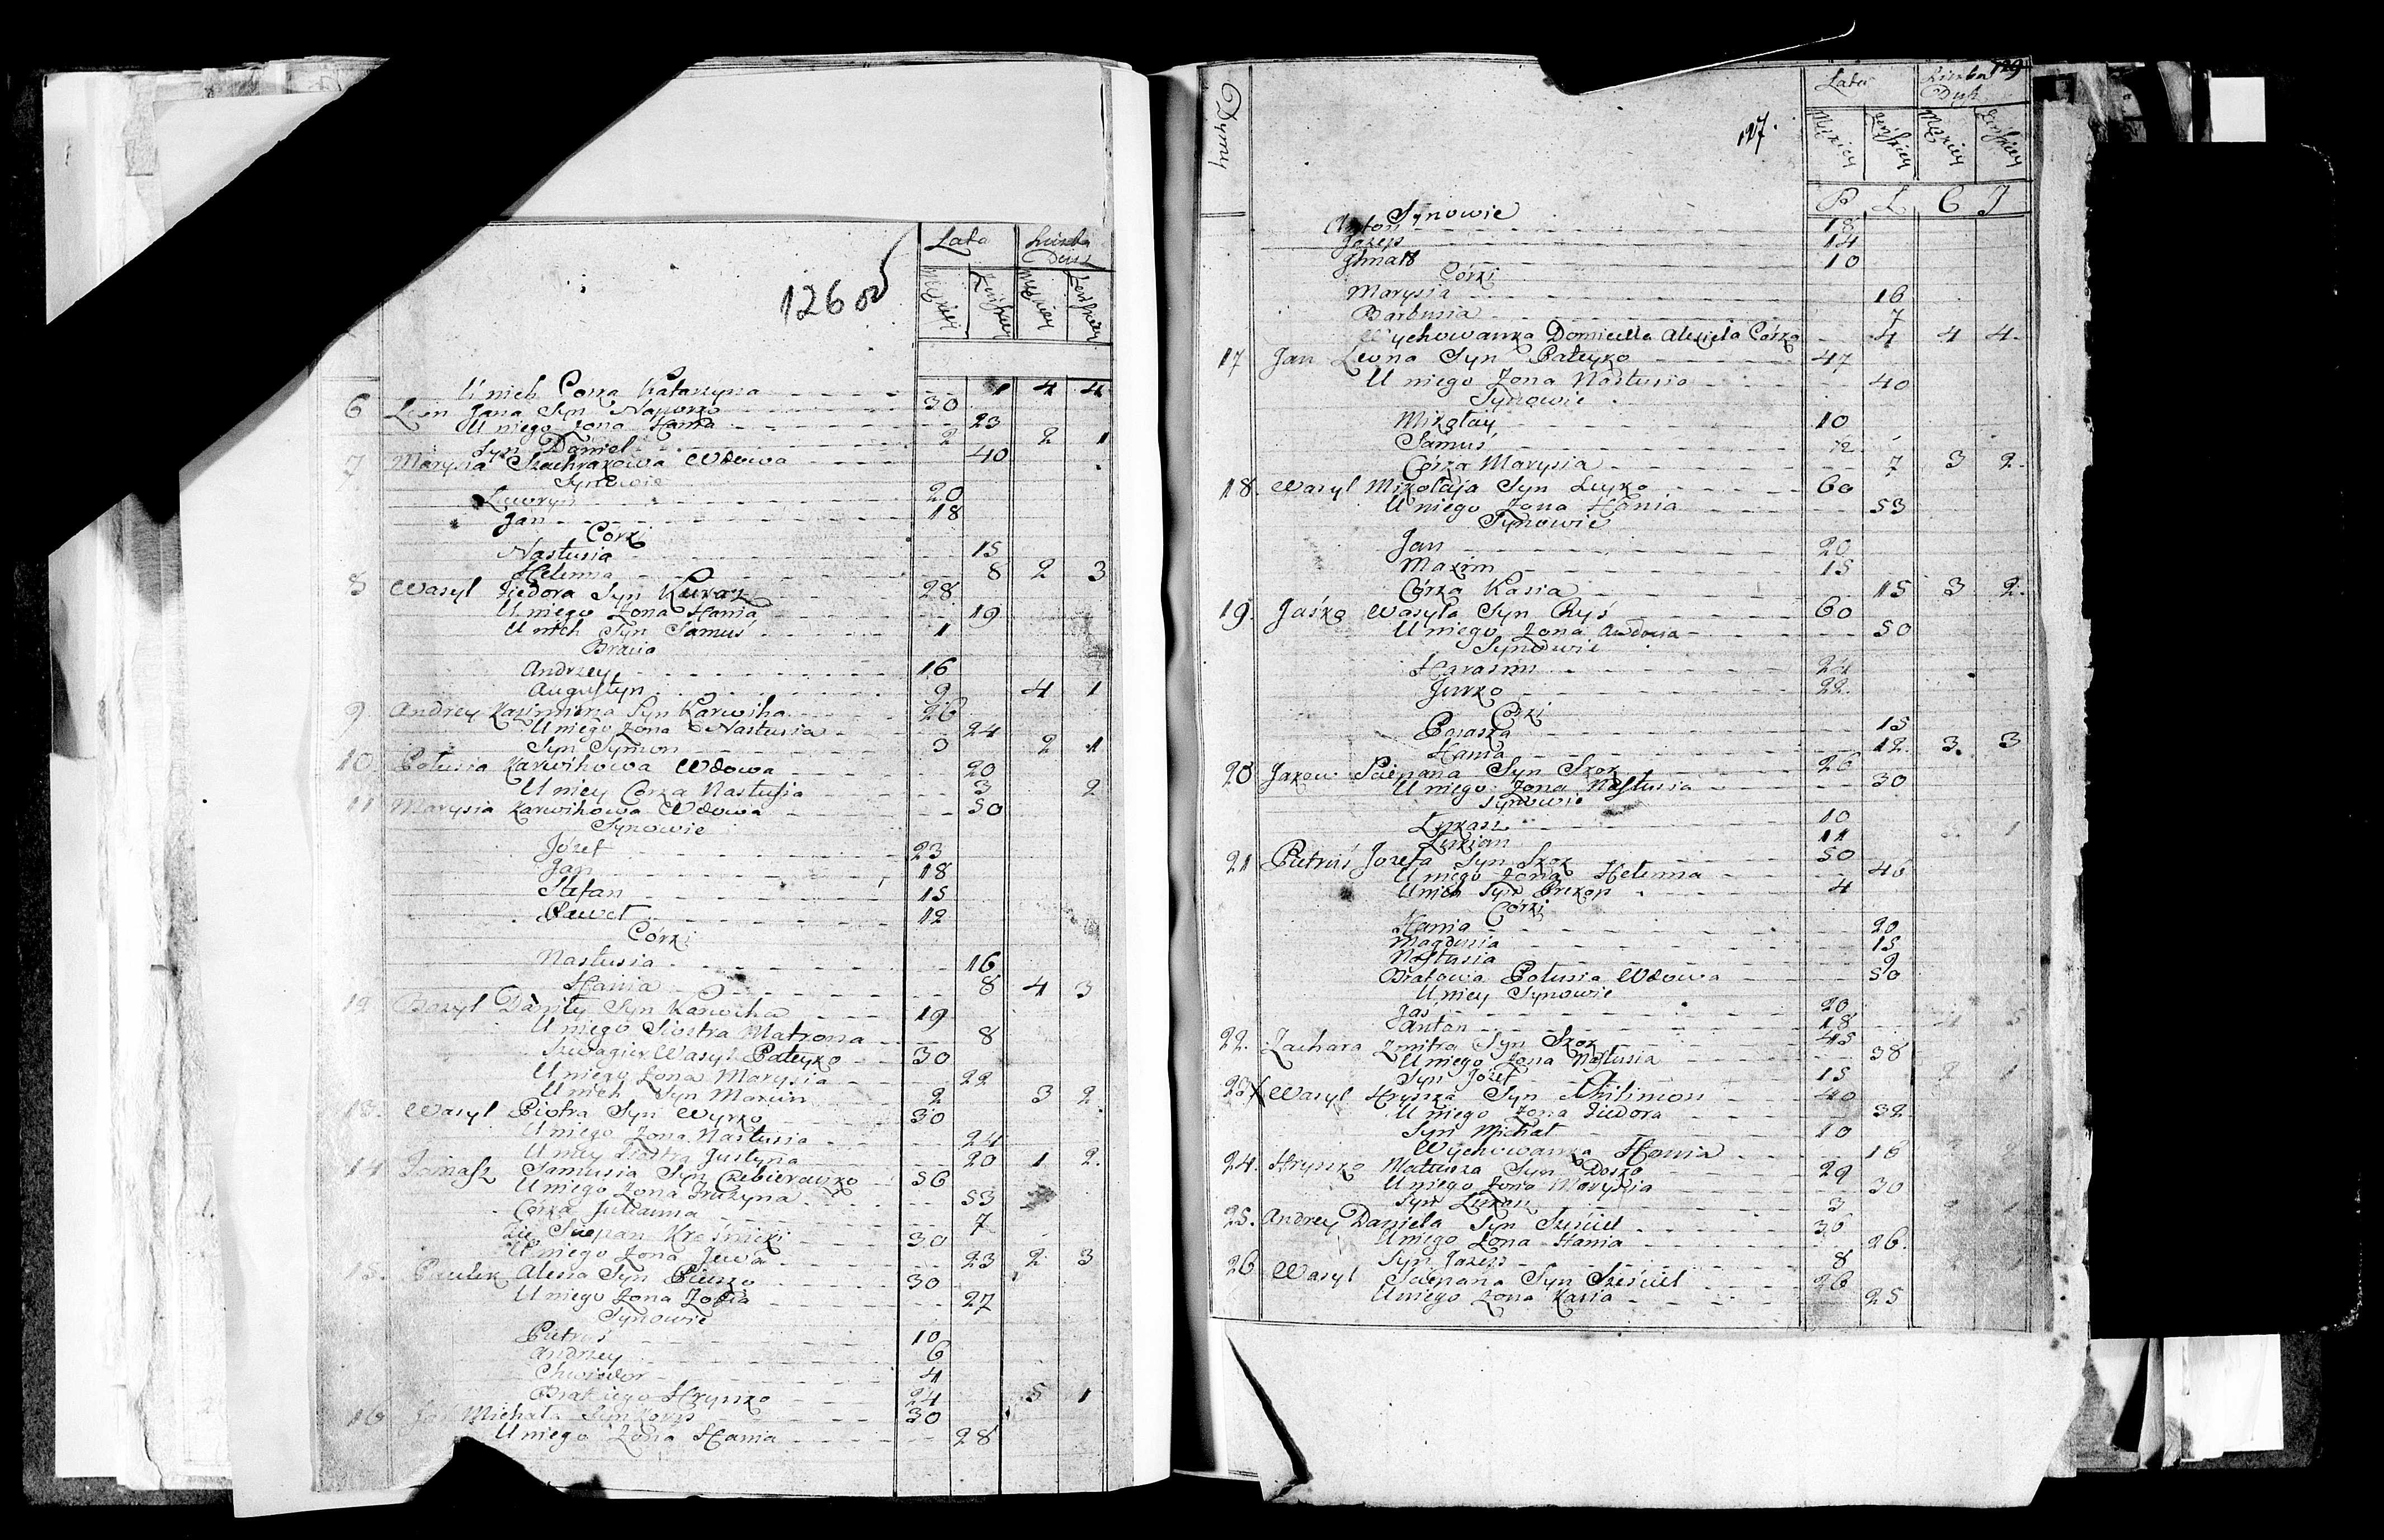 126 об
Lata Liczba Dusz
Męzkiey Żeńskiey Męzkiey Żeńskiey
U nich Corka Katarzyna 1 4 4
6 Leon Jana Syn 30
U niego Zona Hania 23
Syn Daniel 2 2 1
7 Marysia Wdowa 40
Synowie
Ławryn 20
Jan 18
Corki
Nastusia 15
Helenna 8 2 3
8 Wasyl Fiedora Syn 28
U niego Zona Hania 19
U nich Syn Samuś 1
Bracia
Andrzey 16
Augustyn 9 4 1
9 Andrey Kazimierza Syn Karwiha 26
U niego Zona Nastusia 24
Syn Symon 3 2 1
10. Połusia Karwihowa Wdowa 20
U niey Córka Nastusia 3 2
11 Marysia Karwihowa Wdowa 50
Synowie
Józef 23
Jan 18
Stefan 15
Paweł 12
Córki
Nastusia 16
Hania 8 4 3
12 Bazyl Daniły Syn Karwiha 19
U niego Siostra Matrona 8
Szwagier Wasyl Pateyko 30
U niego Zona Marysia 22
U nich Syn Marcin 2 3 2
13. Wasyl Piotra Syn Wyrko 30
U niego Zona Nastusia 24
U niey Siostra Justyna 20 1 2.
14 Tomasz Samusia Syn 56
U niego Zona Fruzyna 53
Córka Julianna 7
Zięć Stepan 30
U niego Zona Jewa 23 2 3
15. Pawluk Alexa Syn 30
U niego Zona Zofia 27
Synowie
Pietruś 10
Andrzey 6
Chwiedor 4
Brat iego Hryszko 24 5 1
16 Michała Syn 30
U niego Zona Hania 28
Dymy
127. 129
Lata Liczba Dusz
Męzkiey Żeńskiey Męzkiey Żeńskiey
Synowie
Anton 18
Jozep 14
Jhnat 10
Córki
Marysia 16
Barbusia 7
Wychowanka Domicella Alexieia Córka 4 4 4
17 Jan Leona Syn Pateyko 47
U niego Zona Nastusia 40
Synowie
Mikołay 10
Samuś
Córka Marysia 7 3 2.
18. Wasyl Mikołaja Syn 60
U niego Zona Hania 53
Synowie
Jan 20
Maxim 15
Córka Kasia 15 3 2.
19. Jaśko Wasyla Syn Ryś 60
U niego Zona Awdosia 50
Synowie
Harasim 24
Jurko 22.
Córki
Paraska 15
Hania 12 3. 3
20 Jakow Sciepana Syn Skok 26
U niego Zona Nastusia 30
Synowie
Łukasz 10 1
Łukian 11
21 Pietruś Jozefa Syn Skok 50
U niego Zona Helenna 46
U nich Syn Prokop 4
Córki
Hania 20
Magdusia 15
Nastusia 9
Bratowa Połusia Wdowa 50
U niey Synowie
Jaś 20
Anton 18 5
22. Zachara Zmitra Syn Skok 45
U niego Zona Nastusia 38
Syn Jozef 15 2 1
23 Wasyl Hryszka Syn Philimon 40
U niego Zona Fiedora 32
Syn Michał 10
Wychowanka Hania 16 2
24. Hryszko Mateusza Syn 29
U niego Zona Marysia 30
Syn Łukasz 3 2 1
25. Andrey Daniela Syn 36
U niego Zona Hania 26.
Syn Jozep 8 1
26 Wasyl Sciepana Syn 26
U niego Zona Kasia 25